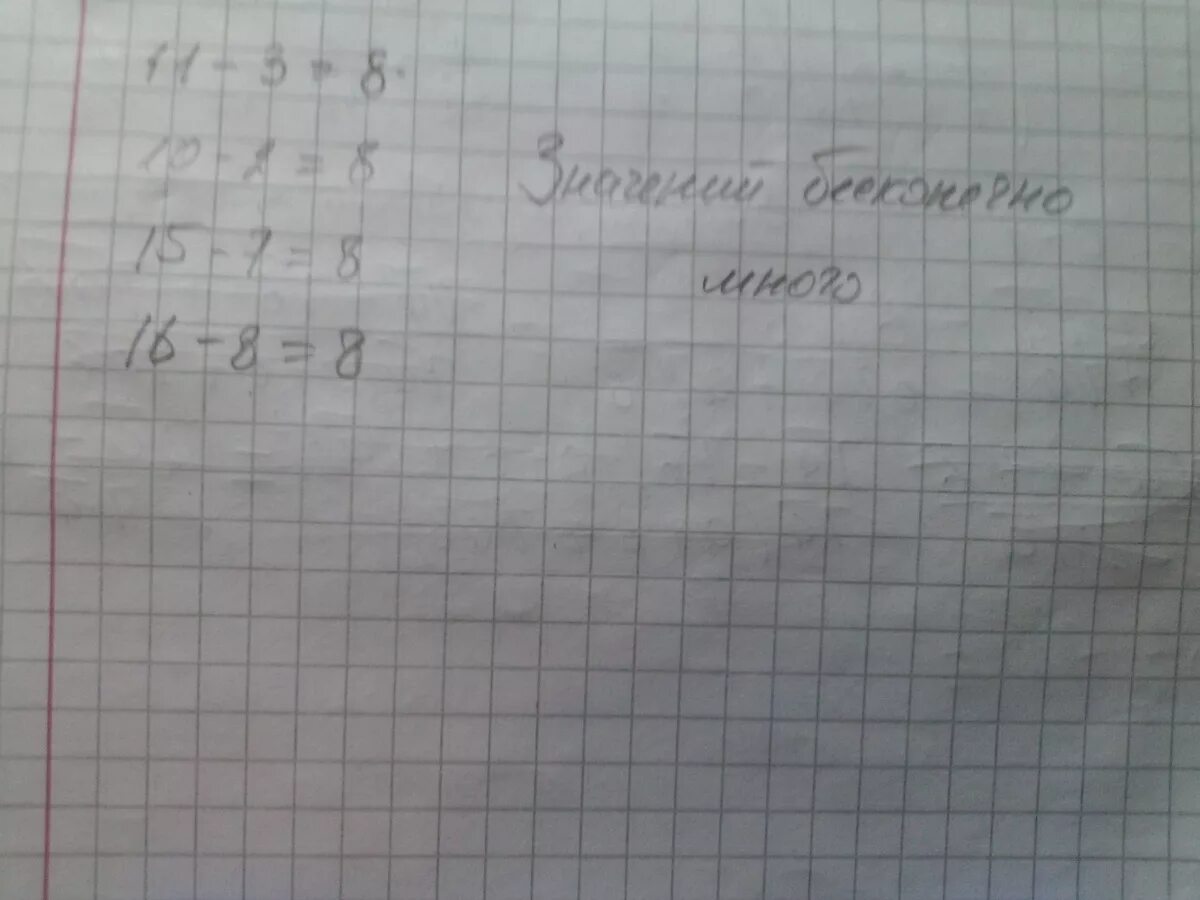 11 - 3 = 8.
10 - 2 = 8
15 - 7 = 8
16 - 8 = 8
Значений бесконечно
много